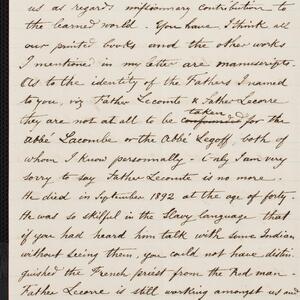 us as regards missionary contribution to
the learned world. You have, I think all
our printed books and the other works
I mentioned in my letter are manuscripts.
As to the identity of the Fathers I named
to you, viz Father Lecomte & Father Lecorre
taken
they are not at all to be confounded for the
Abbé Lacombe or the Abbé Legoff, both of
whom I know personnally. Only I am very
sorry to say Father Lecomte is no more.
He died in September 1892 at the age of forty.
He was so skilful in the Slavy language that
if you had heard him talk with some Indian
without seeing them, you could not have distin
guished the French priest from the Red man.
Father Lecorre is still working amongst us and